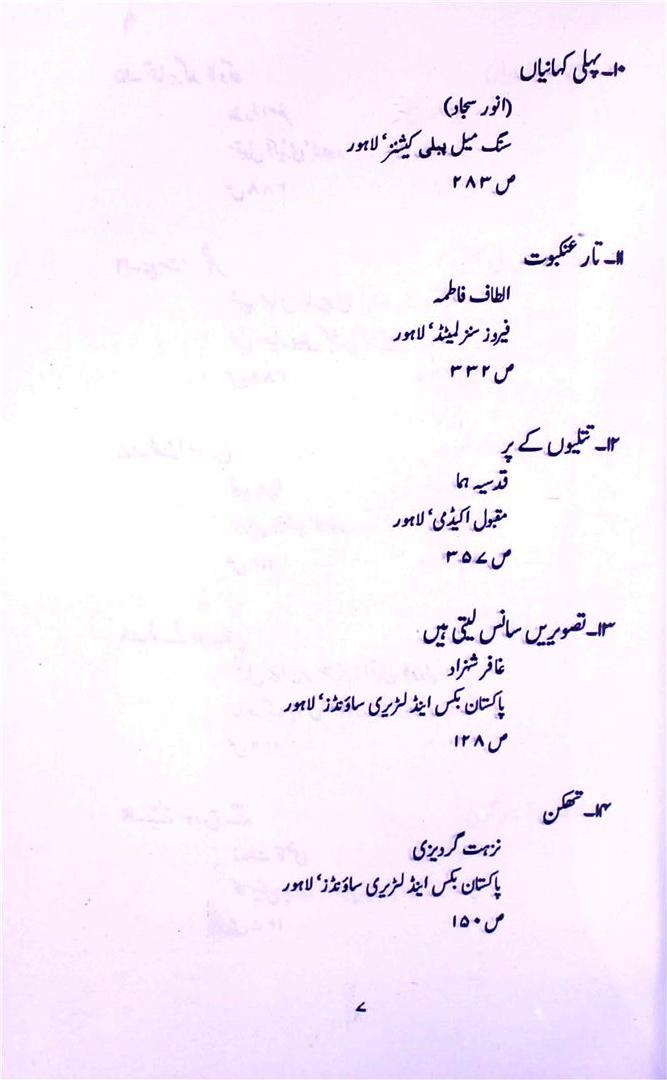 ۱۰۔ پہلی کہانیاں
(انور سجاد)
سنگ میل پبلی کیشنز، لاہور
ص ۲۸۳
۱۱۔ تار عنکبوت
الطاف فاطمہ
فیروز سنز لمیٹڈ، لاہور
ص ۳۳۲
۱۲۔ تتلیوں کے پر
قدسیہ ہما
مقبول اکیڈمی، لاہور
ص ۳۵۷
۱۳۔ تصویریں سانس لیتی ہیں
غافر شہزاد
پاکستان بکس اینڈ لٹریری ساؤنڈز، لاہور
ص ۱۲۸
۱۴۔ تھکن
نزہت گردیزی
پاکستان بکس اینڈ لٹریری ساؤنڈز، لاہور
ص ۱۵۰
۷